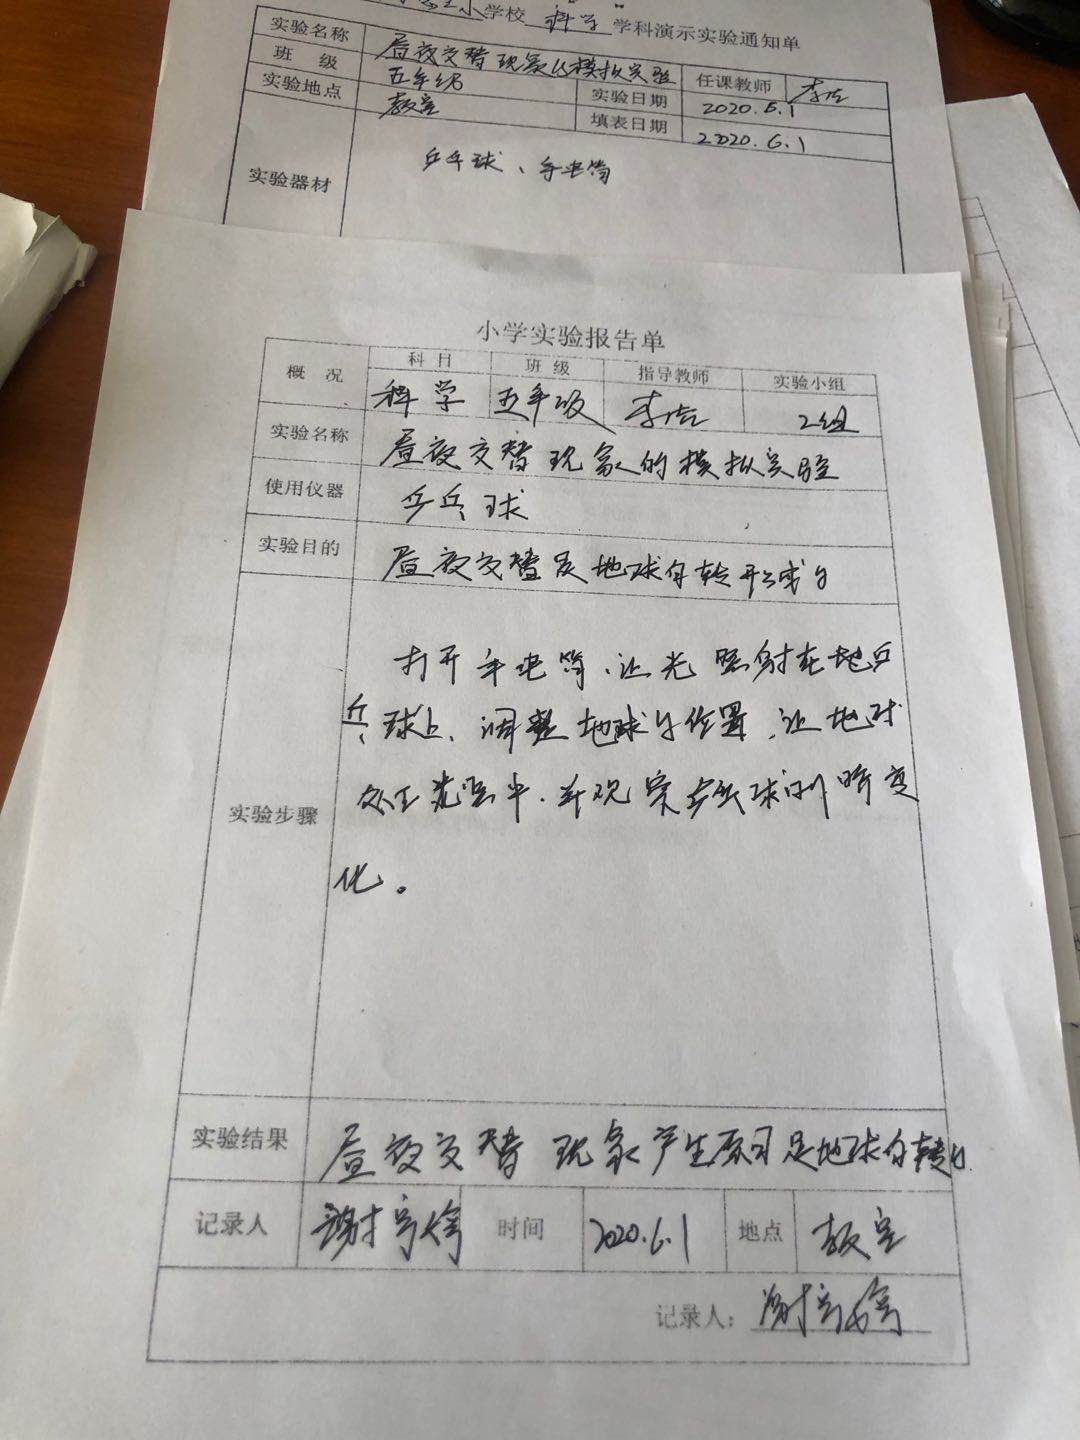 小学校 科学 学科演示实验通知单
实验名称 昼夜交替现象的模拟实验 任课教师
班 级 五年级 实验日期 2020.5.1
实验地点 教室 填表日期 2020.6.1
实验器材 乒乓球、手电筒
小学实验报告单
概 况 科 目 班 级 指导教师 实验小组
科学 五年级 2组
实验名称 昼夜交替现象的模拟实验
使用仪器 乒乓球
实验目的 昼夜交替是地球自转形成的
打开手电筒,让光照射在地乒
乓球上、调整地球的位置,让地球
实验步骤 处于光照中,并观察乒乓球的明暗变
化。
实验结果 昼夜交替现象产生原因是地球自转的
记录人 时间 2020.6.1 地点 教室
记录人: